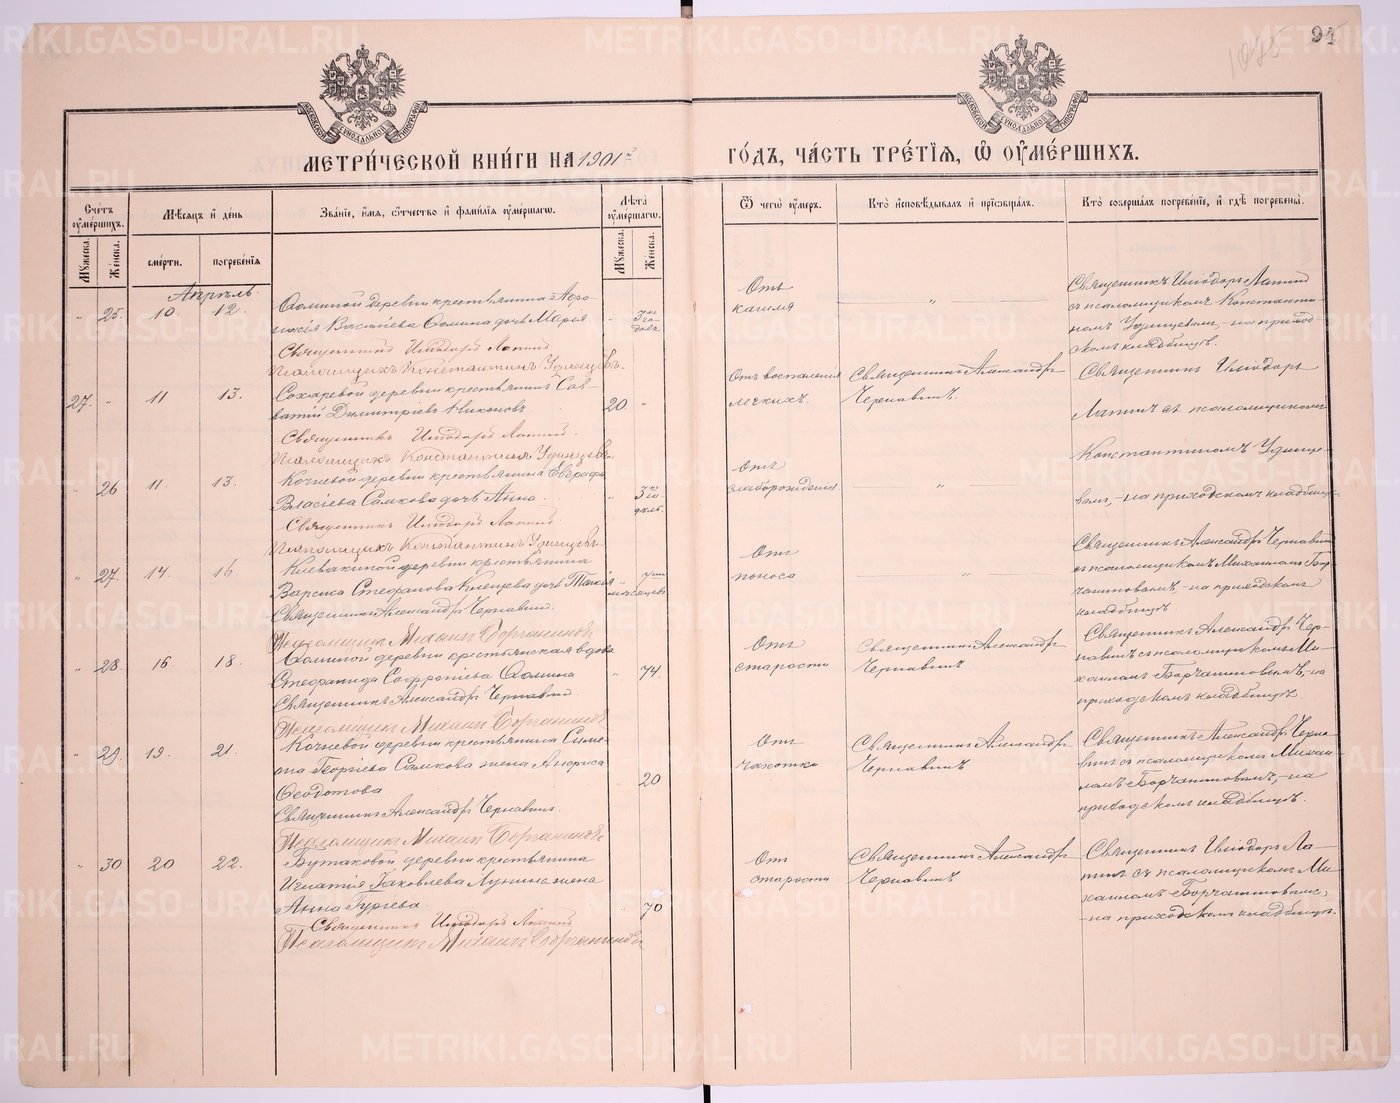 1025
91
МЕТРИ́ЧЕСКОЙ КНИ́ГИ НА 1901 й
ГО́ДЪ, ЧА́СТЬ ТРЕ́ТІѦ, Ѽ ОУМЕ́РШИХЪ.
Сче́тъ оумершихъ.
Мужеска.
Женска.
Мѣсѧцъ и день
сме́рти.
погребе́нїѧ
Зва́нїе, и҆́мѧ, ѻ҆́тчество и҆ фами́лїѧ оуме́ршагѡ.
Лѣта оуме́ршагѡ.
Мужеска.
Женска.
Ѿ чегѡ̀ оу́меръ.
Кто̀ и҆сповѣ́дывалъ и҆ прїѡбща́лъ.
Кто̀ соверша́лъ погребе́нїе, и҆ гдѣ̀ погребены̀.
Апрѣль.
" 25. 10. 12.
Ѳоминой деревни крестьянина Аѳа-
насія Васильева Ѳомина дочь Марія
" 3 хъ годовъ
Священникъ Исидоръ Лапинъ
Псаломщикъ Константинъ Удинцевъ.
Отъ
кашля
"
Священникъ Исидоръ Лапин
съ псаломщикомъ Константи-
номъ Удинцевымъ,-на приход-
скомъ кладбищѣ.
27. " 11 13.
Сохаревой деревни крестьянинъ Сав-
ватій Димитріевъ Никоновъ
20. "
Священникъ Исидоръ Лапинъ.
Псаломщикъ Константинъ Удинцевъ.
Отъ воспаленія
легкихъ.
Священникъ Александръ
Чернавинъ.
Священникъ Исидоръ
Лапинъ съ псаломщикомъ
Константиномъ Удинце-
вымъ,-на приходскомъ кладбищѣ
" 26 11. 13.
Кочневой деревни крестьянина Евграфа
Власіева Самкова дочь Анна
" 3 хъ недѣль.
Священникъ Исидоръ Лапинъ.
Псаломщикъ Константинъ Удинцевъ.
Отъ
слаборожденія.
"
" 27. 14. 16
деревни крестьянина
Стефанова Клещева дочь
" мѣсяцевъ
Священникъ Александръ Чернавин.
Псаломщикъ Михаилъ Борчаниновъ
Отъ
поноса
"
Священникъ Александръ Чернавинъ
съ псаломщикомъ Михаиломъ Бор-
чаниновымъ,-на приходскомъ
кладбищѣ
" 28. 16 18.
Ѳоминой деревни крестьянская вдова
Стефанида Софроніева Ѳомина
" 74.
Священникъ Александръ Чернавин.
Псаломщикъ Михаилъ Борчаниновъ
Отъ
старости
Священникъ Александръ
Чернавинъ
Священникъ Александръ Чер-
навинъ съ псаломщикомъ Ми-
хаиломъ Борчаниновымъ,-на
приходскомъ кладбищѣ.
" 29. 19. 21.
Кочневой деревни крестьянина Симе-
она Георгіева Самкова жена
Ѳеодотова
20
Священникъ Александръ Чернавин.
Псаломщикъ Михаилъ Борчаниновъ
Отъ
чахотки
Священникъ Александръ
Чернавинъ
Священникъ Александръ Черна-
винъ съ псаломщикомъ Михаи-
ломъ Борчаниновымъ,-на
приходскомъ кладбищѣ.
" 30 20 22.
Бутаковой деревни крестьянина
Игнатія Іаковлева Лунина жена
Анна Гурьева.
" 70
Священникъ Исидоръ Лапинъ
Псаломщикъ Михаилъ Борчаниновъ
Отъ
старости
Священникъ Александръ
Чернавинъ
Священникъ Исидоръ Ла-
пинъ съ псаломщикомъ Ми-
хаиломъ Борчаниновымъ,
-на приходскомъ кладбищѣ.
METRIKI.GASO-URAL.RU